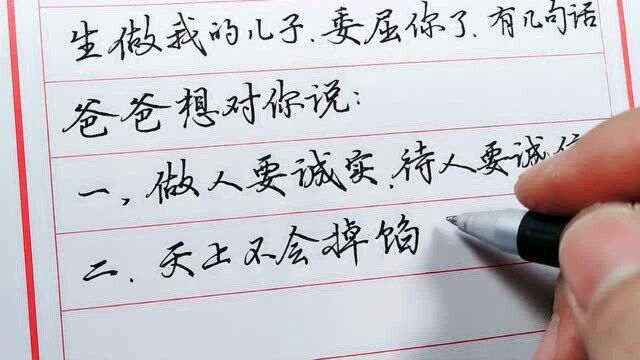 生做我的儿子.委屈你了.有几句话
爸爸想对你说:
一,做人要诚实.待人要诚信
二.天上不会掉馅